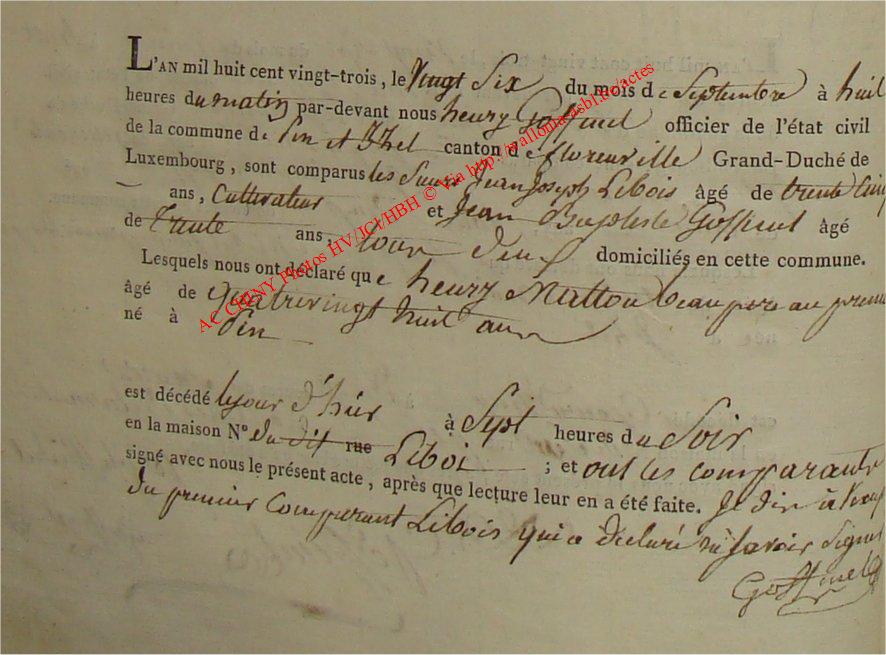 L'AN mil huit cent vingt-trois, le Vingt Six du mois de Septembre à huit
heures du matin par-devant nous henry Goffinet officier de l'état civil
de la commune de Pin et Izel canton de florenville Grand-Duché de
Luxembourg, sont comparus les Sieurs Jean Joseph Libois âgé de trente Cinq
ans, Cultivateur et Jean Baptiste Goffinet âgé
de trente ans, tous deux domiciliés en cette commune.
Lesquels nous ont déclaré que henry Matton beau pere au premier
âgé de quatrevingt huit ans
né à Pin
est décédé le jour d'hier à Sept heures du Soir
en la maison N° du dit rue Liboi ; et ont les comparants
signé avec nous le présent acte, après que lecture leur en a été faite. Je dis à
du premier Comparant Libois qui a déclaré ne Savoir Signer
Goffinet
AC CHINY Photos HV/JCI/HBH © Via http://wallomia.asbl.be/actes